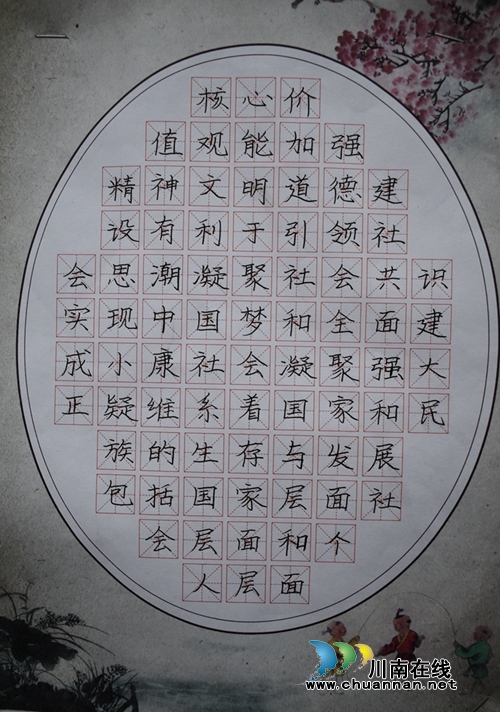 核心价
值观能加强
精神文明道德建
设有利于引领社
会思潮凝聚社会共识
实现中国梦和全面建
成小康社会凝聚强大
正疑维系着国家和民
族的生存与发展
包括国家层面社
会层面和个
人层面
川南在线
www.chuannan.net